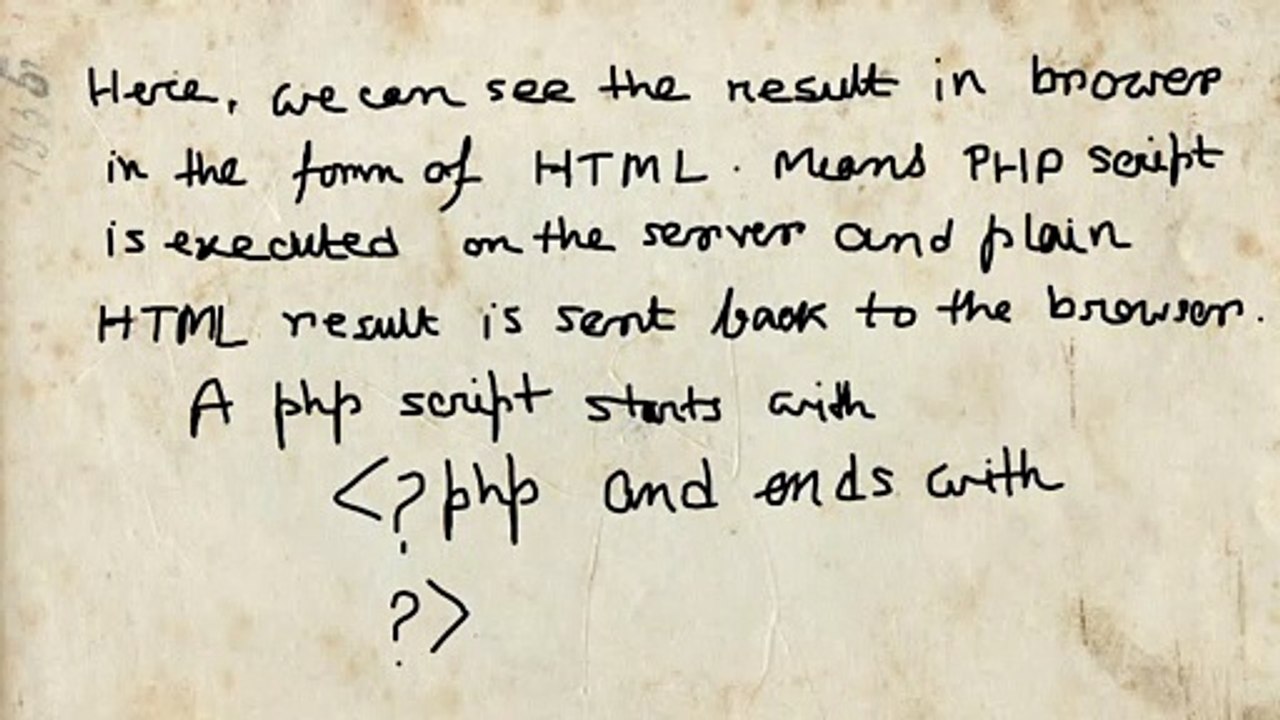 Here, we can see the result in browser
in the form of HTML. Means PHP script
is executed on the server and plain
HTML result is sent back to the browser.
A php script starts with
<?php and ends with
?>